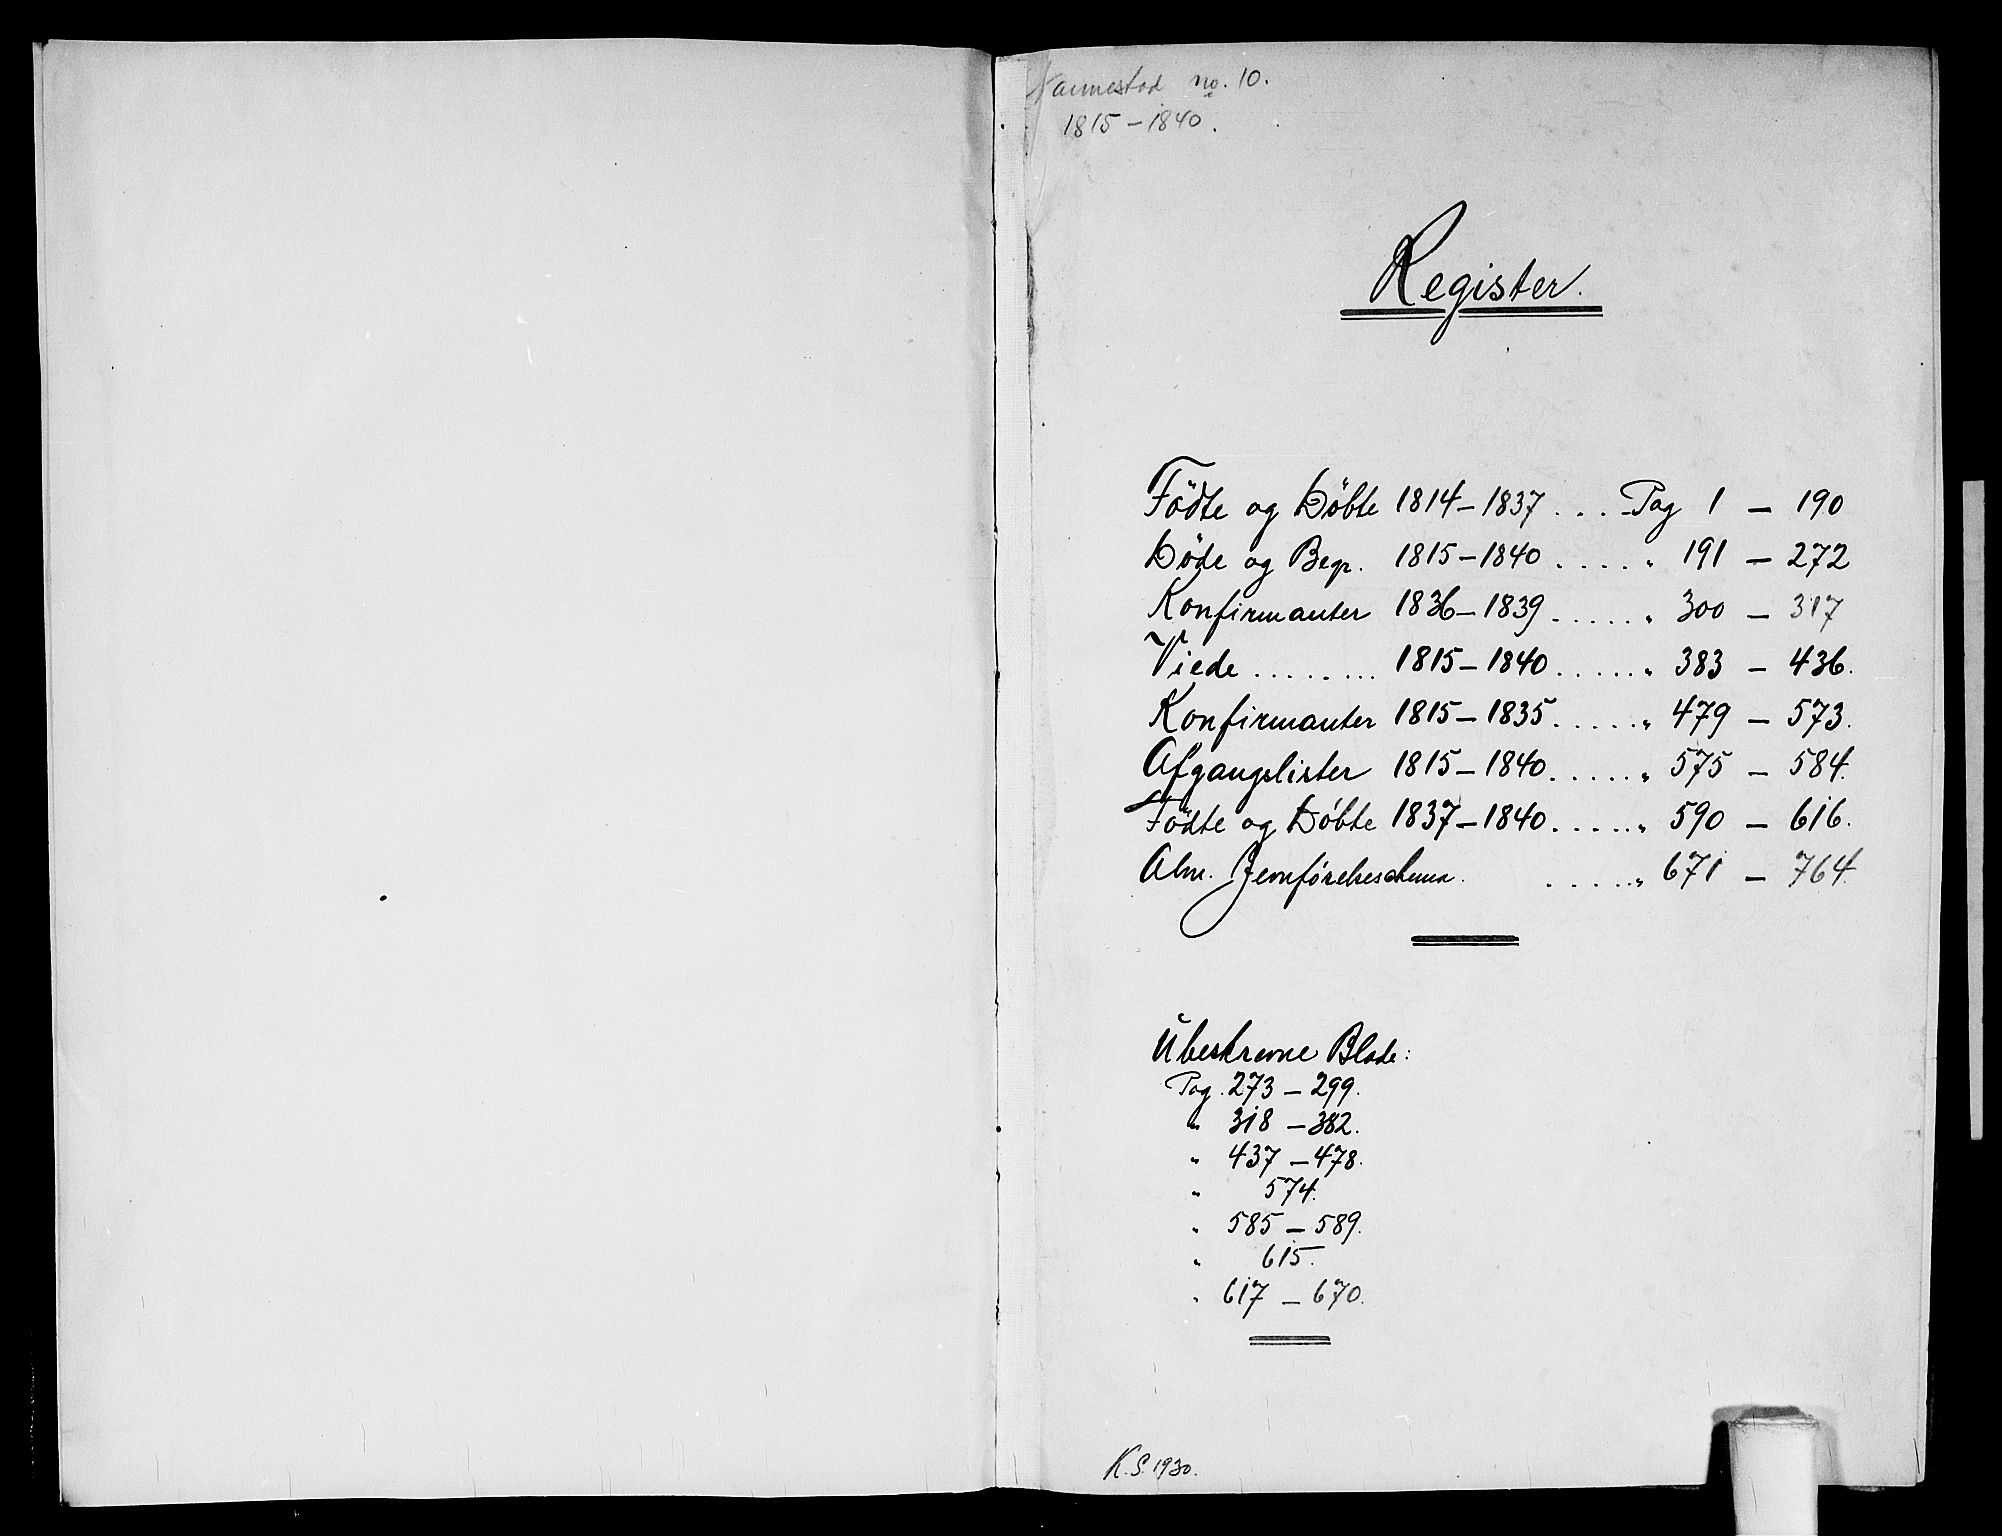 Nannestad no. 10.
1815-1840.
Register.
Födte og Döbte 1814-1837 . . . Pag 1 - 190
Döde og Begr. 1815-1840 . . . . . " 191 - 272
Konfirmanter 1836-1839 . . . . . . " 300 - 317
Viede . . . . . . . . . 1815-1840 . . . . . . " 383 - 436.
Konfirmanter 1815-1835 . . . . . . " 479 - 573.
Afgangslister 1815-1840 . . . . . . " 575 - 584.
Födte og Döbte 1837-1840 . . . . . . " 590 - 616.
Alm. Jevnförelsesschema. . . . . . . " 671 - 764.
Ubeskrevne Blade:
Pag. 273-299.
" 318-382.
" 437-478.
" 574.
" 585-589.
" 615.
" 617-670.
K.S. 1930.